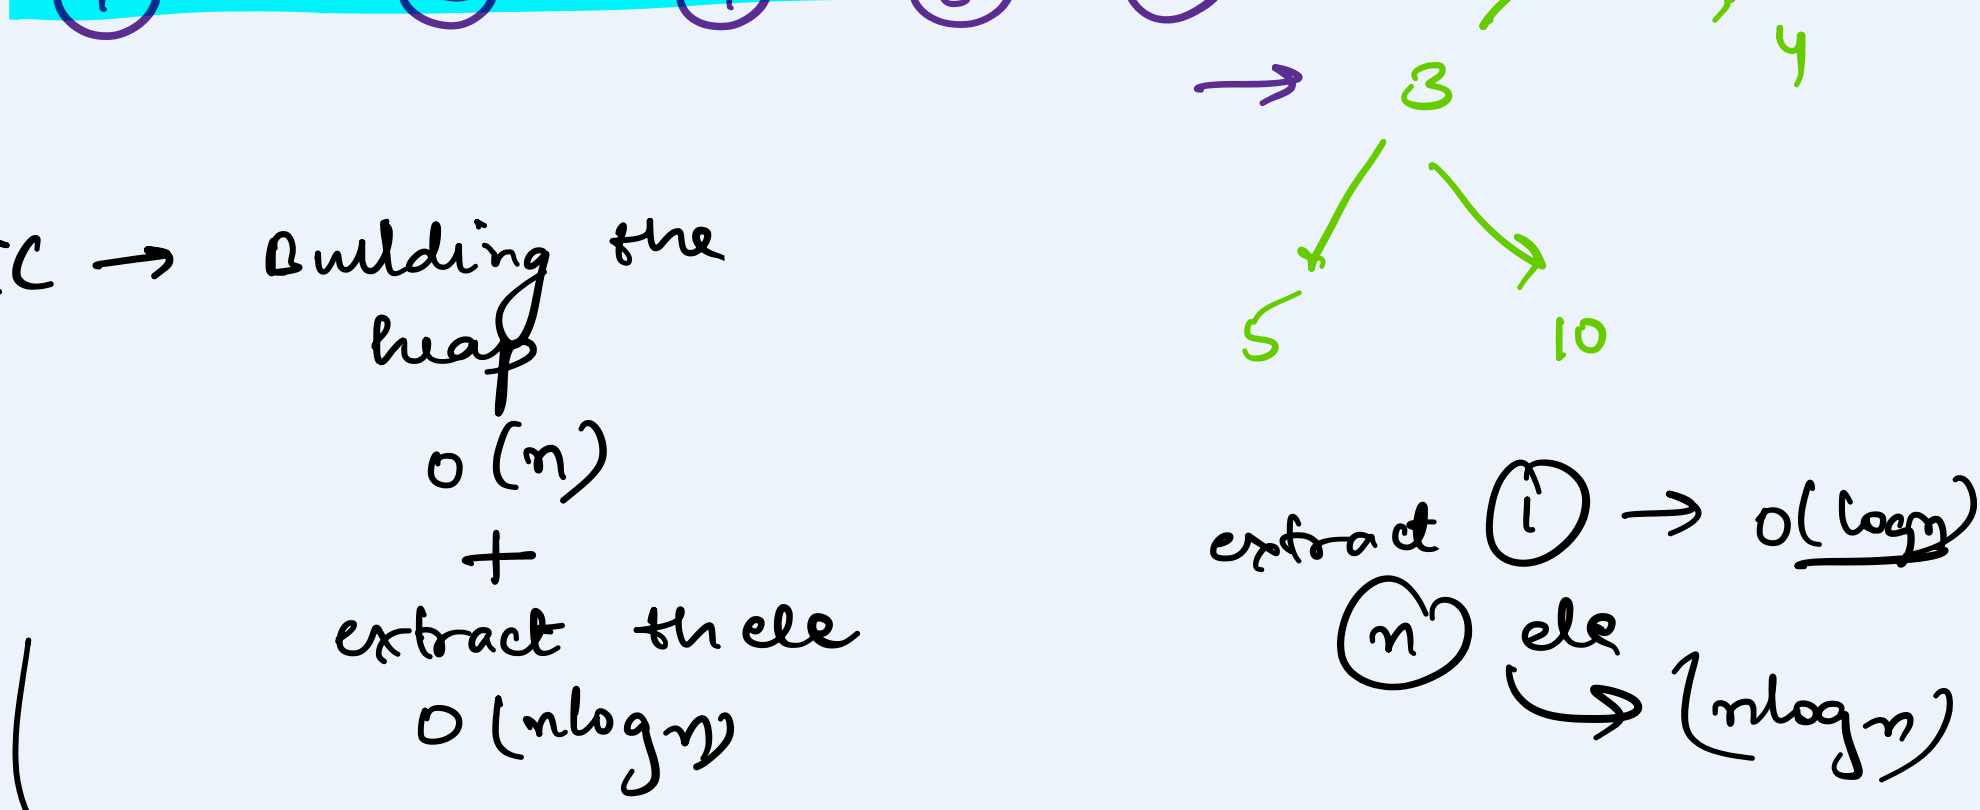 4
→ 3
5 10
C → Building the
heap
O(n)
+
extract th ele
O(nlogn)
extract 1 → O(logn)
n ele
(nlogn)